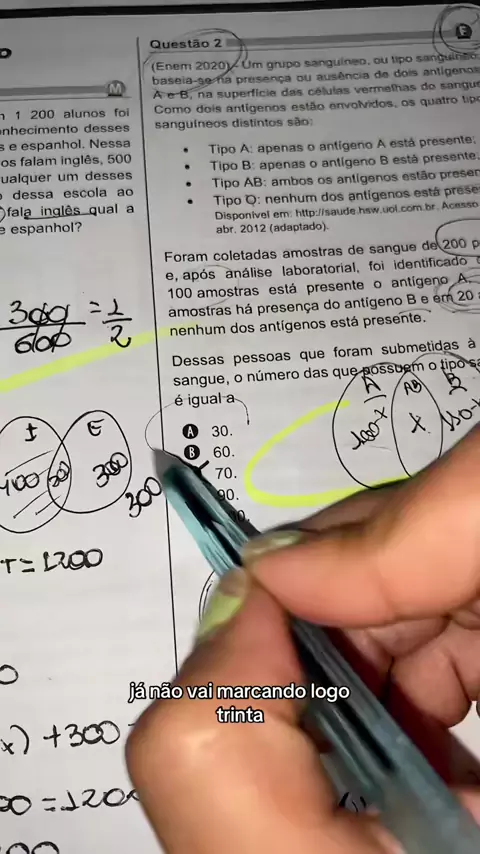 Questão 2
F
M
(Enem 2020) Um grupo sanguíneo, ou tipo sanguíneo,
baseia-se na presença ou ausência de dois antígenos
A e B, na superfície das células vermelhas do sangue
Como dois antígenos estão envolvidos, os quatro tipo
sanguíneos distintos são:
• Tipo A: apenas o antígeno A está presente;
• Tipo B: apenas o antígeno B está presente;
• Tipo AB: ambos os antígenos estão presen
• Tipo O: nenhum dos antígenos está prese
Disponível em: http://saude.hsw.uol.com.br. Acesso
abr. 2012 (adaptado).
Foram coletadas amostras de sangue de 200 p
e, após análise laboratorial, foi identificado
100 amostras está presente o antígeno A,
amostras há presença do antígeno B e em 20
nenhum dos antígenos está presente.
Dessas pessoas que foram submetidas à
sangue, o número das que possuem o tipo sa
é igual a
A 30.
B 60.
70.
90.
1 200 alunos foi
nhecimento desses
s e espanhol. Nessa
os falam inglês, 500
ualquer um desses
dessa escola ao
fala inglês qual a
e espanhol?
300/600 = 1/2
I E
300
300
T = 1200
x) + 300
= 1200
A AB B
100-x x 110-x
já não vai marcando logo
trinta